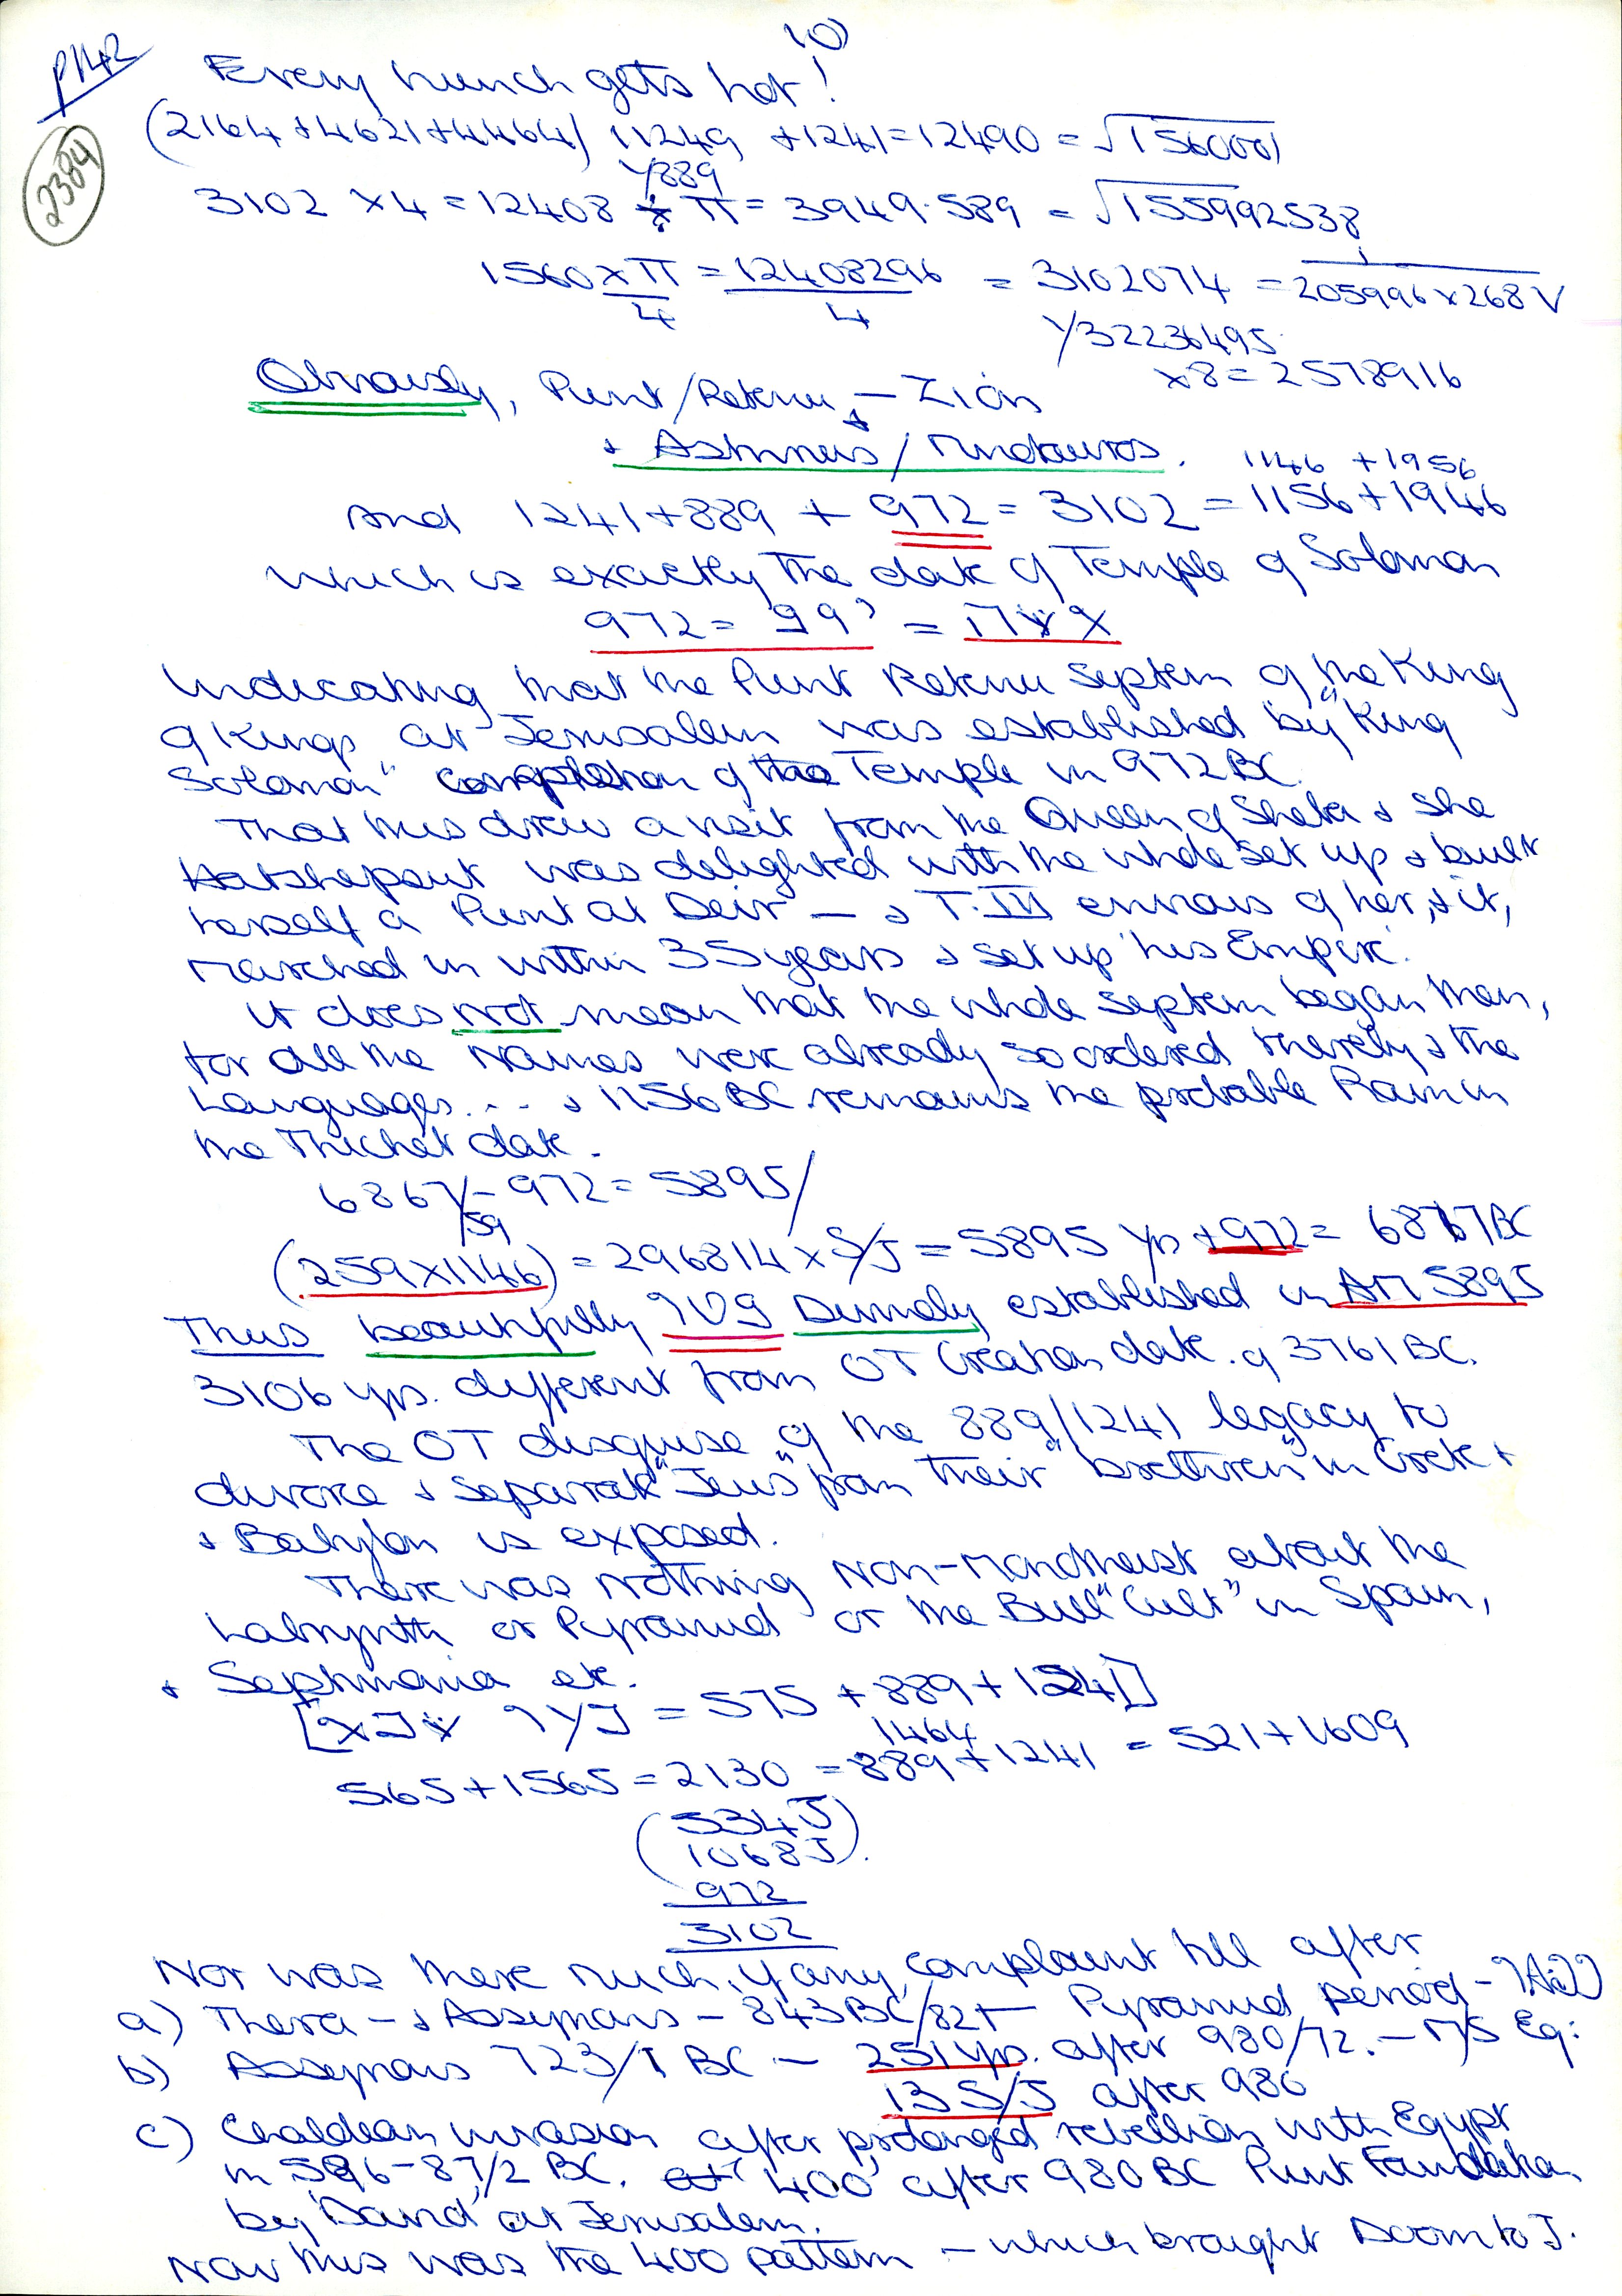 10)
P142
2384
Every hunch gets hot!
(2164 + 4621 + 4464) 11249 + 1241 = 12490 = √1560001
Y889
3102 × 4 = 12408 ÷ π = 3949.589 = √155992538
1560 × π/4 = 12408296/4 = 3102074 = 205996 × 268 V
Y32236495
×8 = 2578916
Obviously, Punt/Retenu – Zion
+ Asterius / Minotauros.
1146 + 1956
And 1241 + 889 + 972 = 3102 = 1156 + 1946
which is exactly the date of Temple of Solomon
972 =
Indicating that the Punt Retenu System of the King
of Kings at Jerusalem was established by "King
Solomon" completion of the Temple in 972 BC.
That this drew a visit from the Queen of Sheba & she
Hatshepsut was delighted with the whole set up & built
herself a Punt at Deir — & T.III envious of her, & it,
marched in within 35 years & set up his Empire.
It does not mean that the whole system began then,
for all the Names were already so ordered thereby & the
Languages... & 1156 BC remains the probable Ram in
the Thicket date.
6867 – 972 = 5895/
/59
(259×1146) = 296814 × S/J = 5895 yrs + 972 = 6867 BC
Thus beautifully established in AM 5895
3106 yrs. different from OT Creation date of 3761 BC.
The OT disguise of the 889/1241 legacy to
divorce & separate "Jews" from their "brethren" in Crete +
& Babylon is exposed.
There was nothing Non-Monotheist about the
Labrynth or Pyramid or the Bull "Cult" in Spain,
& Septimania etc.
= 575 + 889 + 1241]
1464
565 + 1565 = 2130 = 889 + 1241 = 521 + 1609
(534 J
1068 J).
972
3102
Nor was there much, if any, complaint till after
a) Thera – & Assyrians – 843 BC/82+ Pyramid period –
b) Assyrians 723/1 BC – 251 yrs. after 980/72. –
13 S/J after 980
c) Chaldean invasion after prolonged rebellion with Egypt
in 596–87/2 BC. 400 after 980 BC Punt Foundation
by 'David' at Jerusalem.
Now this was the 400 pattern – which brought Doom to J.